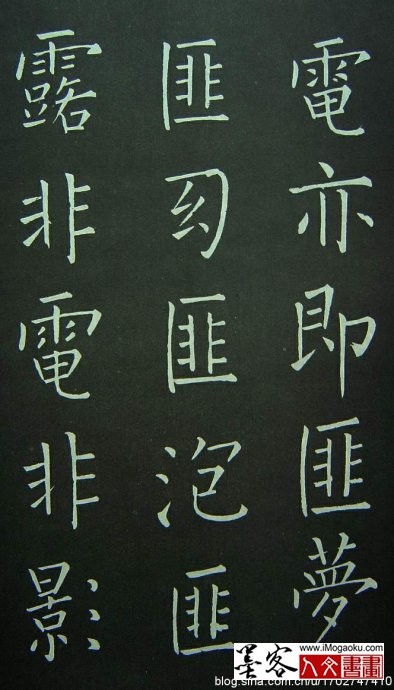 電亦即匪夢
匪幻匪泡匪
露非電非影
www.iMogaoku.com
墨客
人文書畫
blog.sina.com.cn/u/1702747410